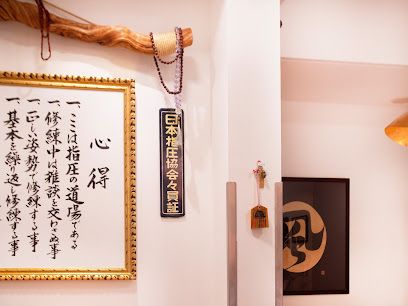 心得
一、ここは指圧の道場である
一、修練中は雑談を交わさぬ事
一、正しい姿勢で修練する事
一、基本を繰り返し修練する事
日本指圧協会々員証
風